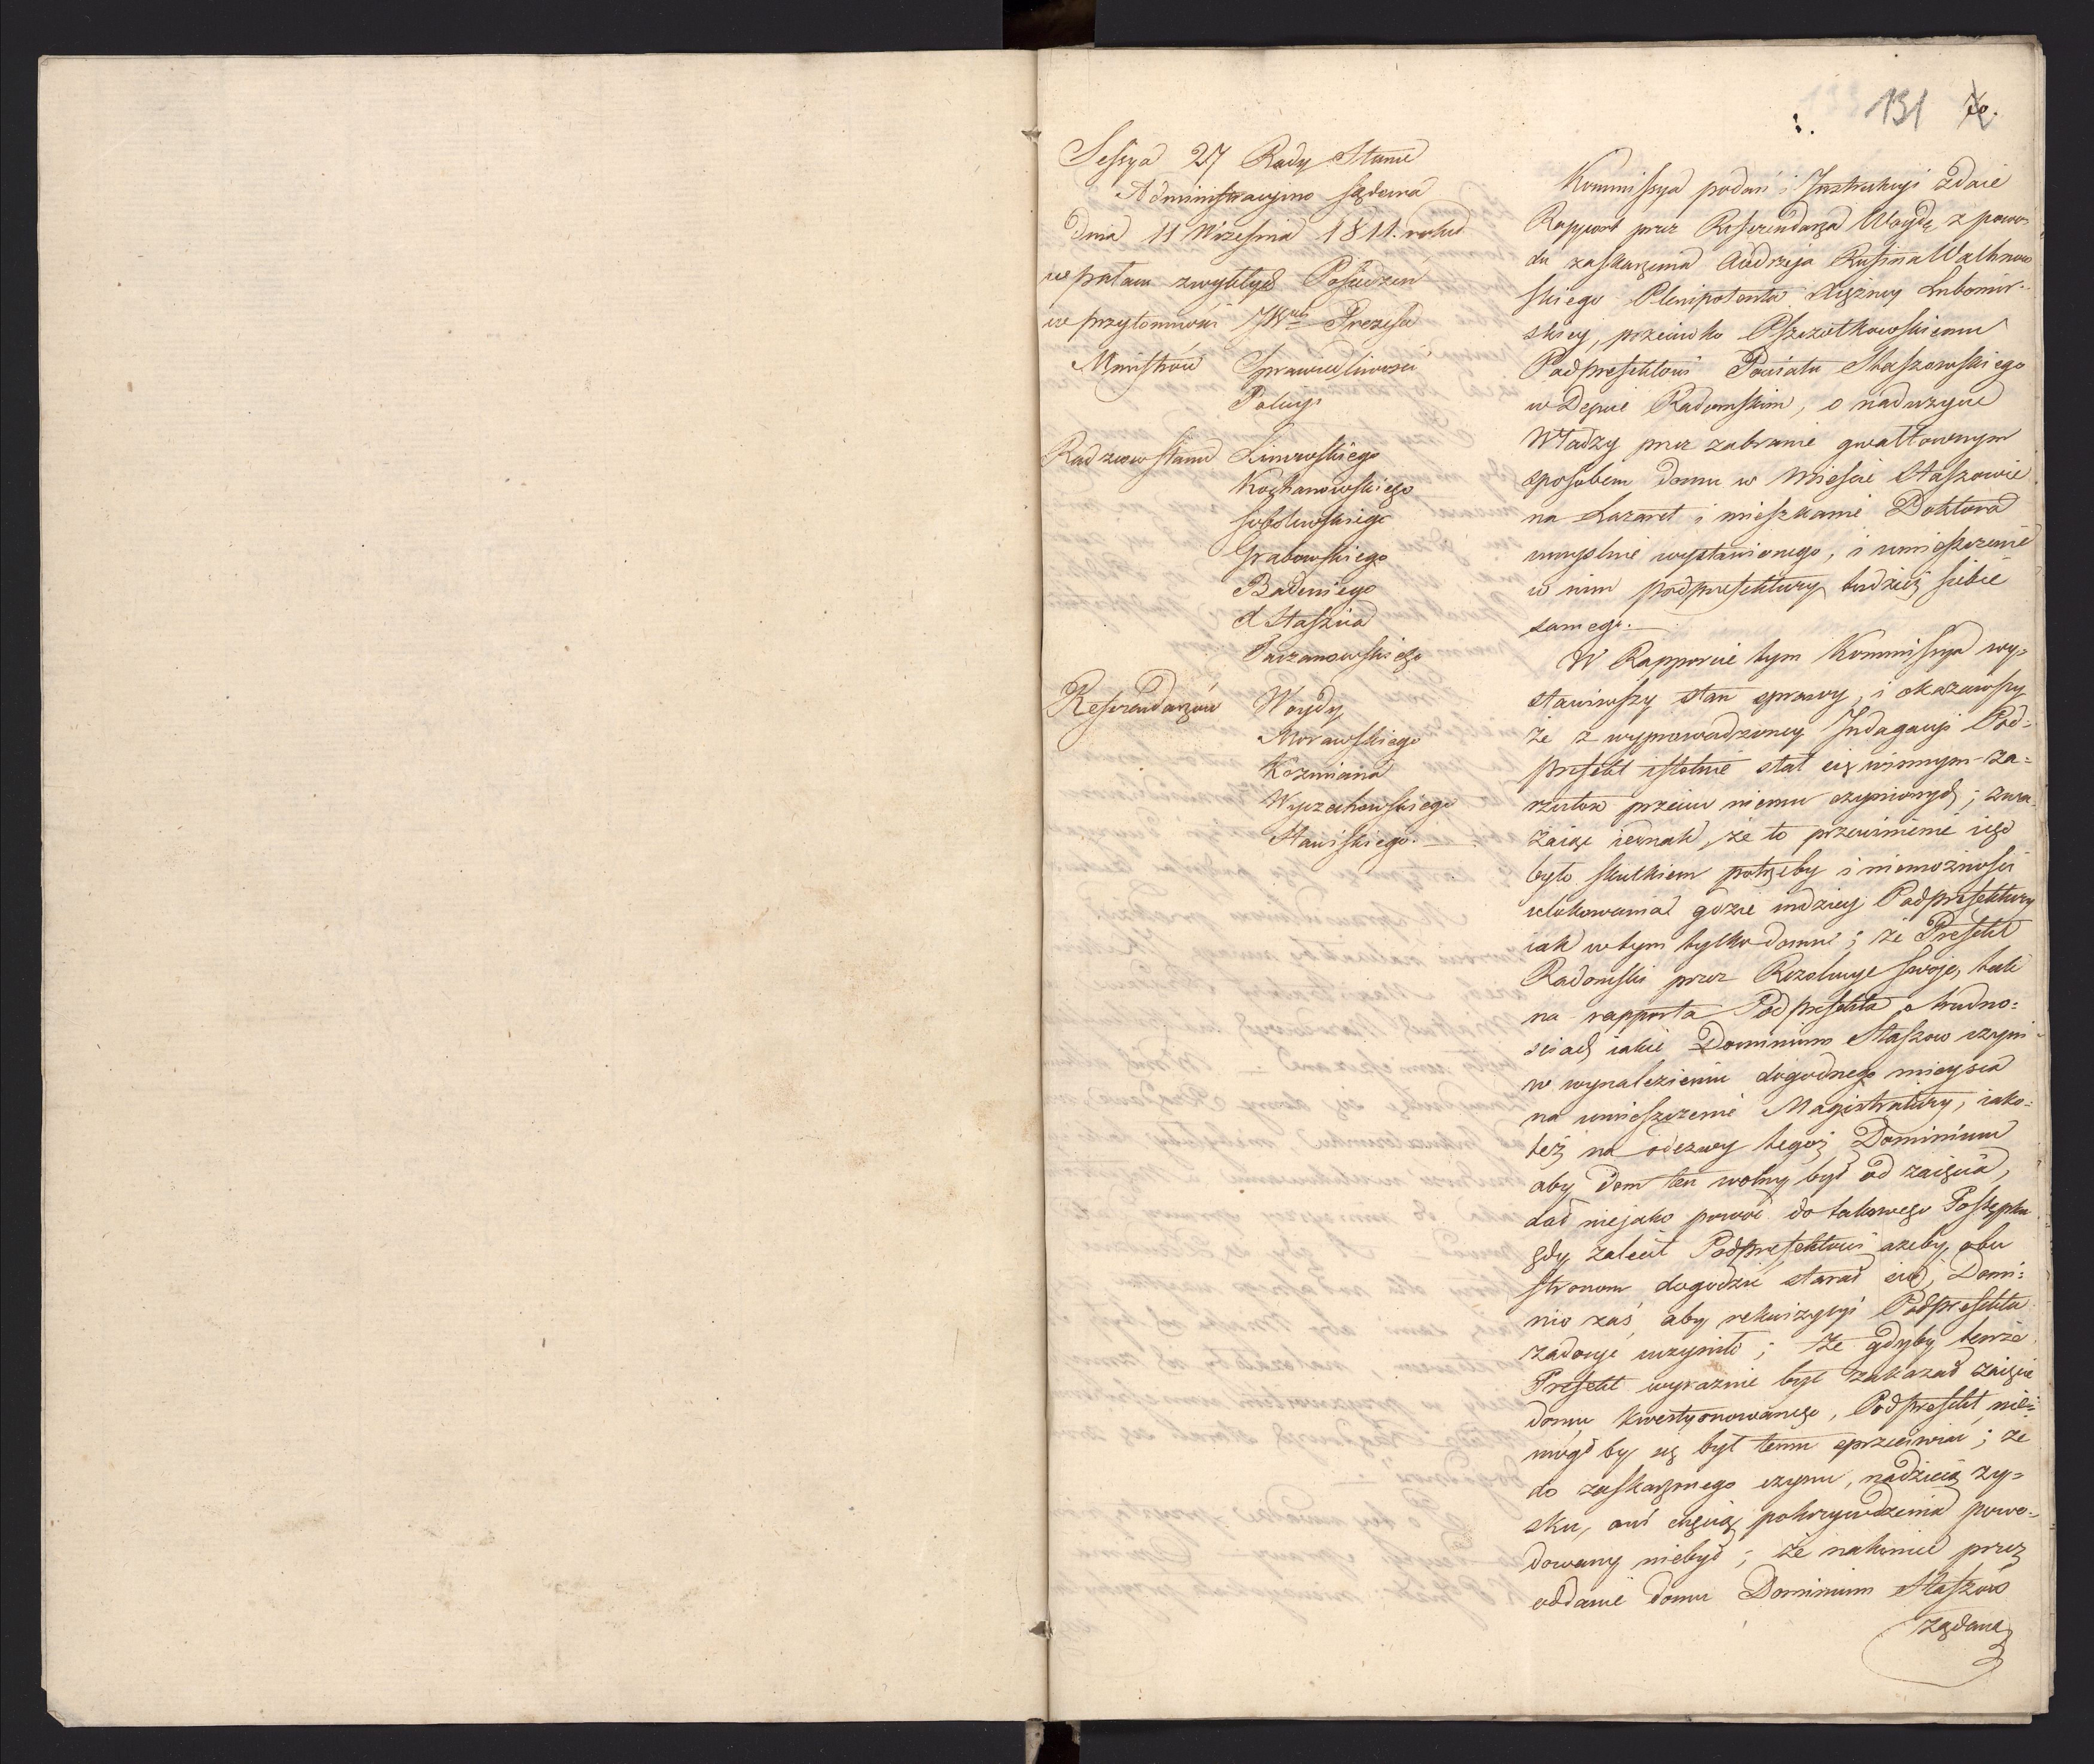 131 70.
Sessya 27 Rady Stanu
Administracyino sądowa
Dnia 11 Września 1811. roku
w pałacu zwykłych Posiedzeń
w przytomności JW Prezesa
Ministrów Sprawiedliwości
Policyi
Radzców Stanu Linowskiego
Kochanowskiego
Sobolewskiego
Grabowskiego
Badeniego
X Staszica
Tarzanowskiego
Referendarzów Woydy
Morawskiego
Kozmiana
Wyczechowskiego
Stawiskiego.
Kommissya podań i Instrukcyi zdaie
Rapport przez Referendarza Woydę z powo-
du zaskarżenia Andrzeja Rusina Walknow
skiego Plenipotenta Xiężney Lubomir-
skiey, przeciwko Pszczółkowskiemu
Podprefektowi Powiatu Staszowskiego
w Depcie Radomskim, o nadużycie
Władzy przez zabranie gwałtownym
sposobem domu w Mieście Staszowie
na Lazaret i mieszkanie Doktora
umyślnie wystawionego, i umieszczenie
w nim podprefektury tudzież siebie
samego.
W Rapporcie tym Kommissya wy=
stawiwszy stan sprawy, i okazawszy
że z wyprowadzoney Indagacyi Pod=
prefekt istotnie stał się winnym za=
rzutów przeciw niemu czynionych; zwa-
żaiąc iednak, że to przewinienie iego
było skutkiem potrzeby i niemożności
ulokowania gdzie indziey Podprefektury
iak w tym tylko domu; że Prefekt
Radomski przez Rezolucye swoje, tak
na rapporta Podprefekta o trudno=
ściach iakie Dominium Staszow czyni
w wynalezieniu dogodnego mieysca
na umieszczenie Magistratury, iako=
też na odezwy tegoż Dominium
aby dom ten wolny był od zaięcia,
dał niejako powód do takowego Postępku
gdy zalecił Podprefektowi ażeby obu
stronom dogodzić starał się, Domi=
nio zaś, aby rekwizycyi Podprefekta
zadosyć uczyniło; że gdyby tenże
Prefekt wyraźnie był zakazał zaięcie
domu kwestyonowanego, Podprefekt nie=
mógłby się był temu sprzeciwiać; że
do zaskarżonego czynu, nadzieią zy=
sku, ani chęcią pokrzywdzenia powo=
dowany niebył; że nakoniec przez
oddanie domu Dominium Staszow
żądane